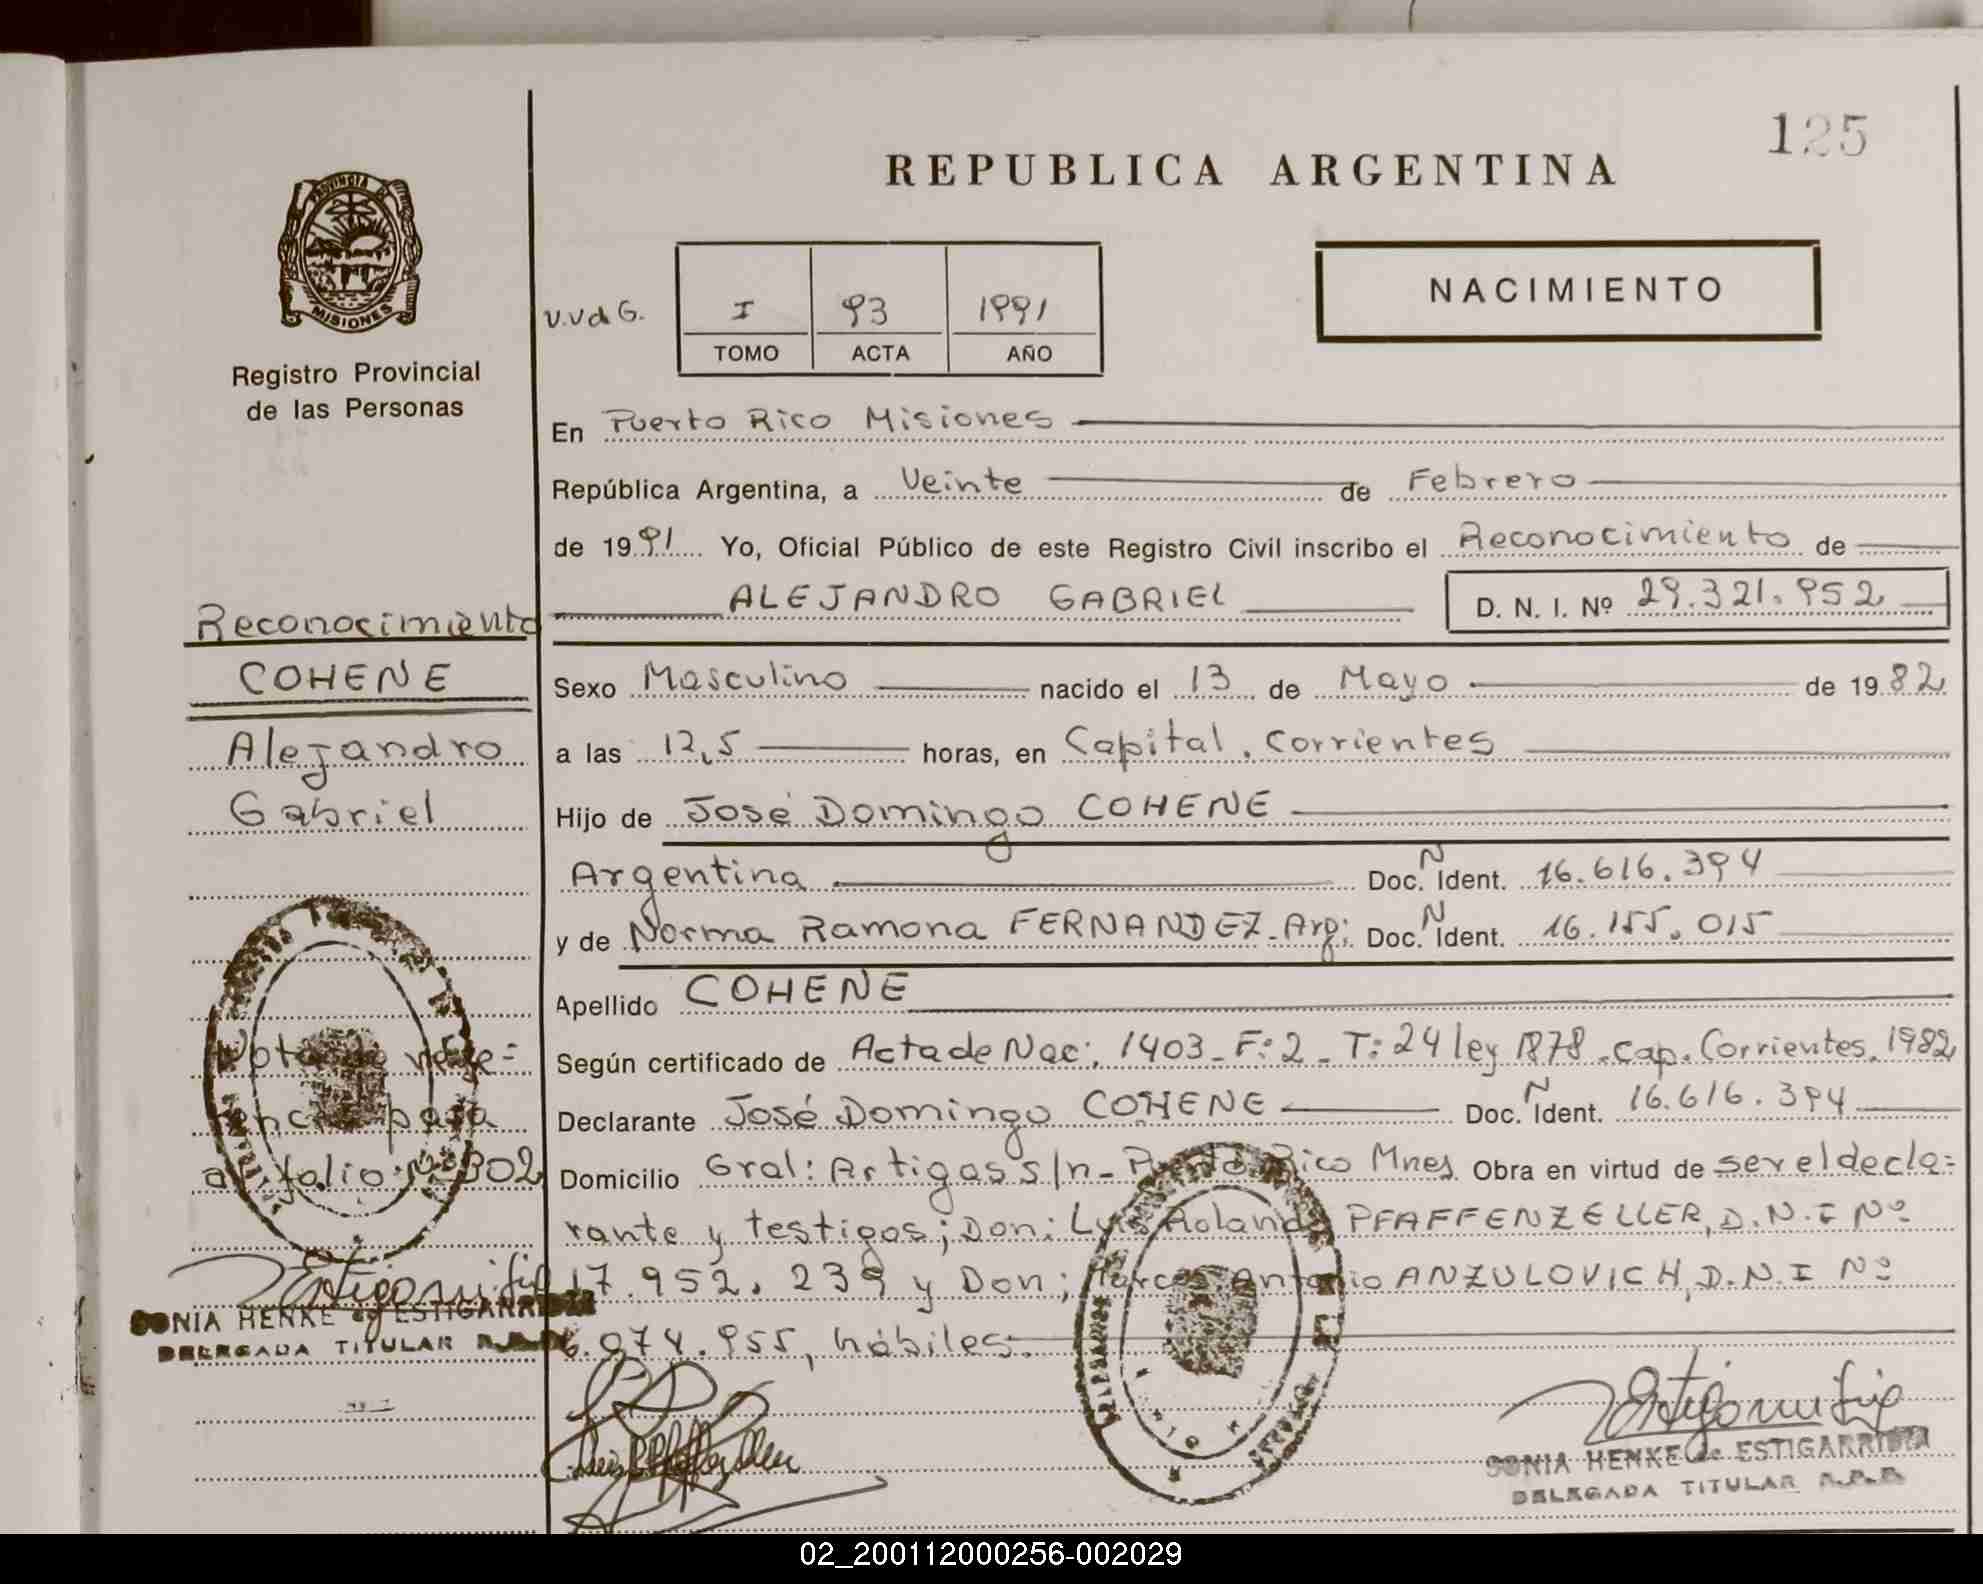 125
REPUBLICA ARGENTINA
PROVINCIA DE
MISIONES
Registro Provincial
de las Personas
V.V d G.
I 93 1991
TOMO ACTA AÑO
NACIMIENTO
En Puerto Rico Misiones
República Argentina, a Veinte de Febrero
de 1991 Yo, Oficial Público de este Registro Civil inscribo el Reconocimiento de
ALEJANDRO GABRIEL D. N. I. Nº 29.321.952
Sexo Masculino nacido el 13 de Mayo de 1982
a las 12,5 horas, en Capital. Corrientes
Hijo de José Domingo COHENE
Argentina Doc. N Ident. 16.616.394
y de Norma Ramona FERNANDEZ-Arg; Doc. N Ident. 16.155.015
Apellido COHENE
Según certificado de Acta de Nac: 1403-F:2-T:24 ley 1878.cap.Corrientes.1982
Declarante José Domingo COHENE Doc. N Ident. 16.616.394
Domicilio Gral: Artigas s/n- Puerto Rico Mnes. Obra en virtud de ser el decla=
rante y testigos; Don: Luis Rolando PFAFFENZELLER, D.N.I Nº
17.952.239 y Don; Marcos Antonio ANZULOVICH, D.N.I Nº
6.074.955, hábiles.
Reconocimiento
COHENE
Alejandro
Gabriel
Nota de refe=
rencia pasa
al folio: Nº 302
SONIA HENKE de ESTIGARRIBIA
DELEGADA TITULAR
SONIA HENKE de ESTIGARRIBIA
DELEGADA TITULAR
02_200112000256-002029